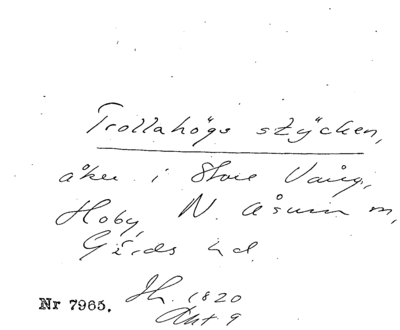 Trollahögs stÿcken,
åker i Store Vång,
Hoby, N. Åsum sn,
Gärds hd.
Jh. 1820
Akt 9
Nr 7965.